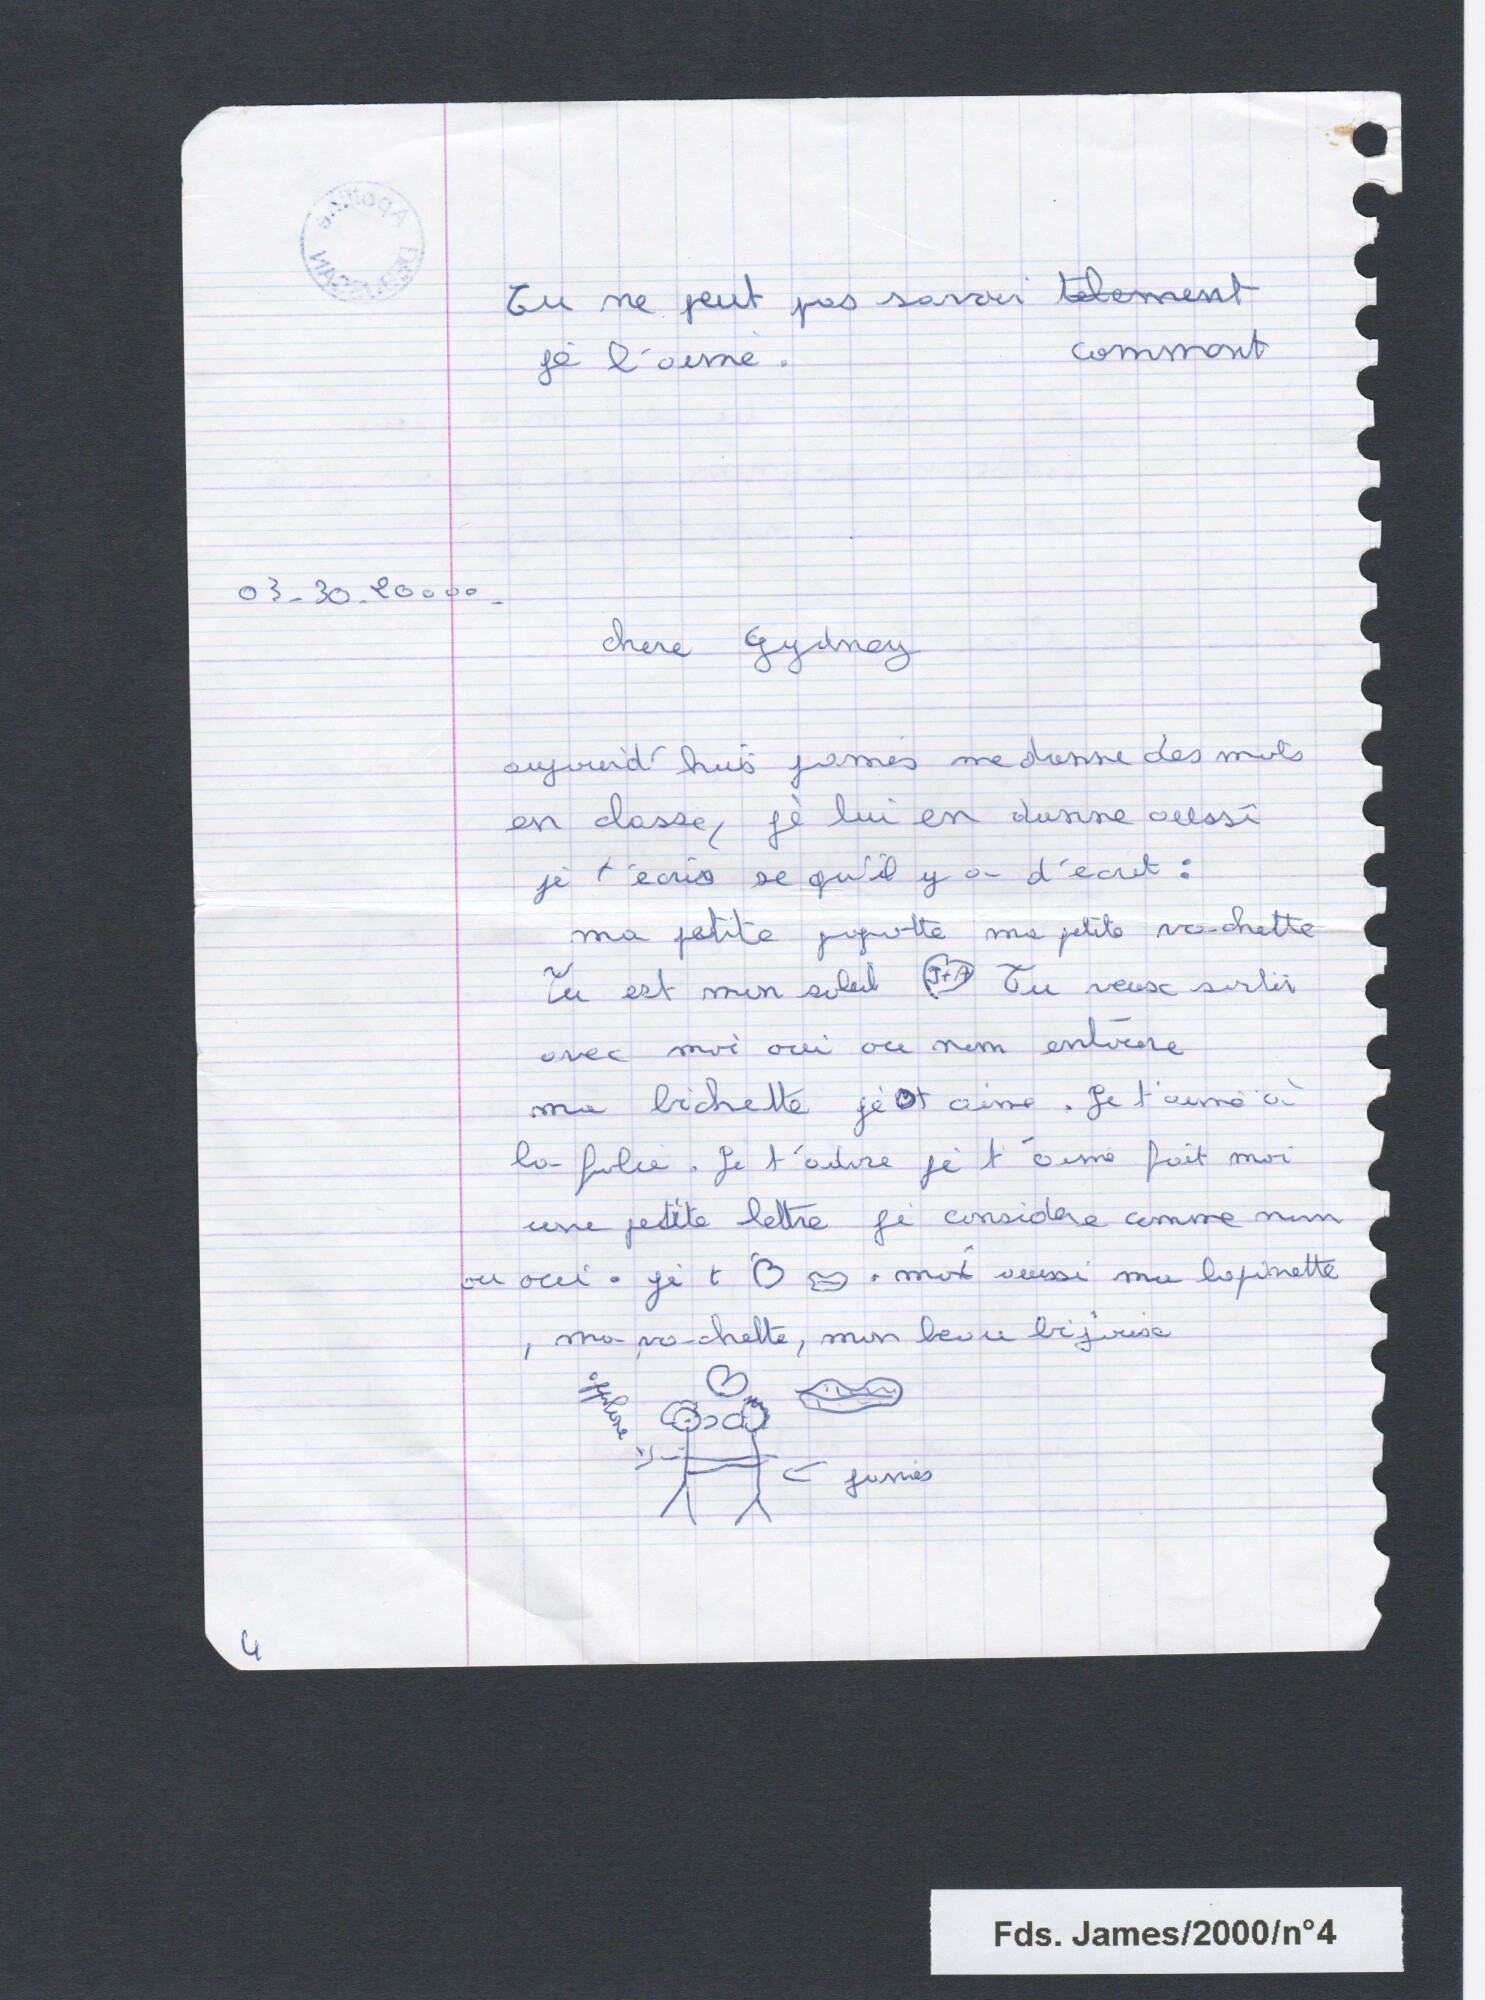 Tu ne peut pas savoir telement
commont
je l'aime.
03-30.20000-
chere Gydney
aujourid'huis james me donne des mots
en classe, je lui en donne aussi
je t'écris se qu'il y a d'écrit :
ma petite popotte ma petite vachette
Tu est mon soleil J+A Tu veux sortir
avec moi oui ou non entoure
ma bichette je t aime. Je t'aime à
la folie. Je t'adore je t'aime fait moi
une petite lettre je considere comme non
ou oui. je t . moi aussi ma lapinette
, ma vachette, mon beau bijoux
james
4
Fds. James/2000/n°4